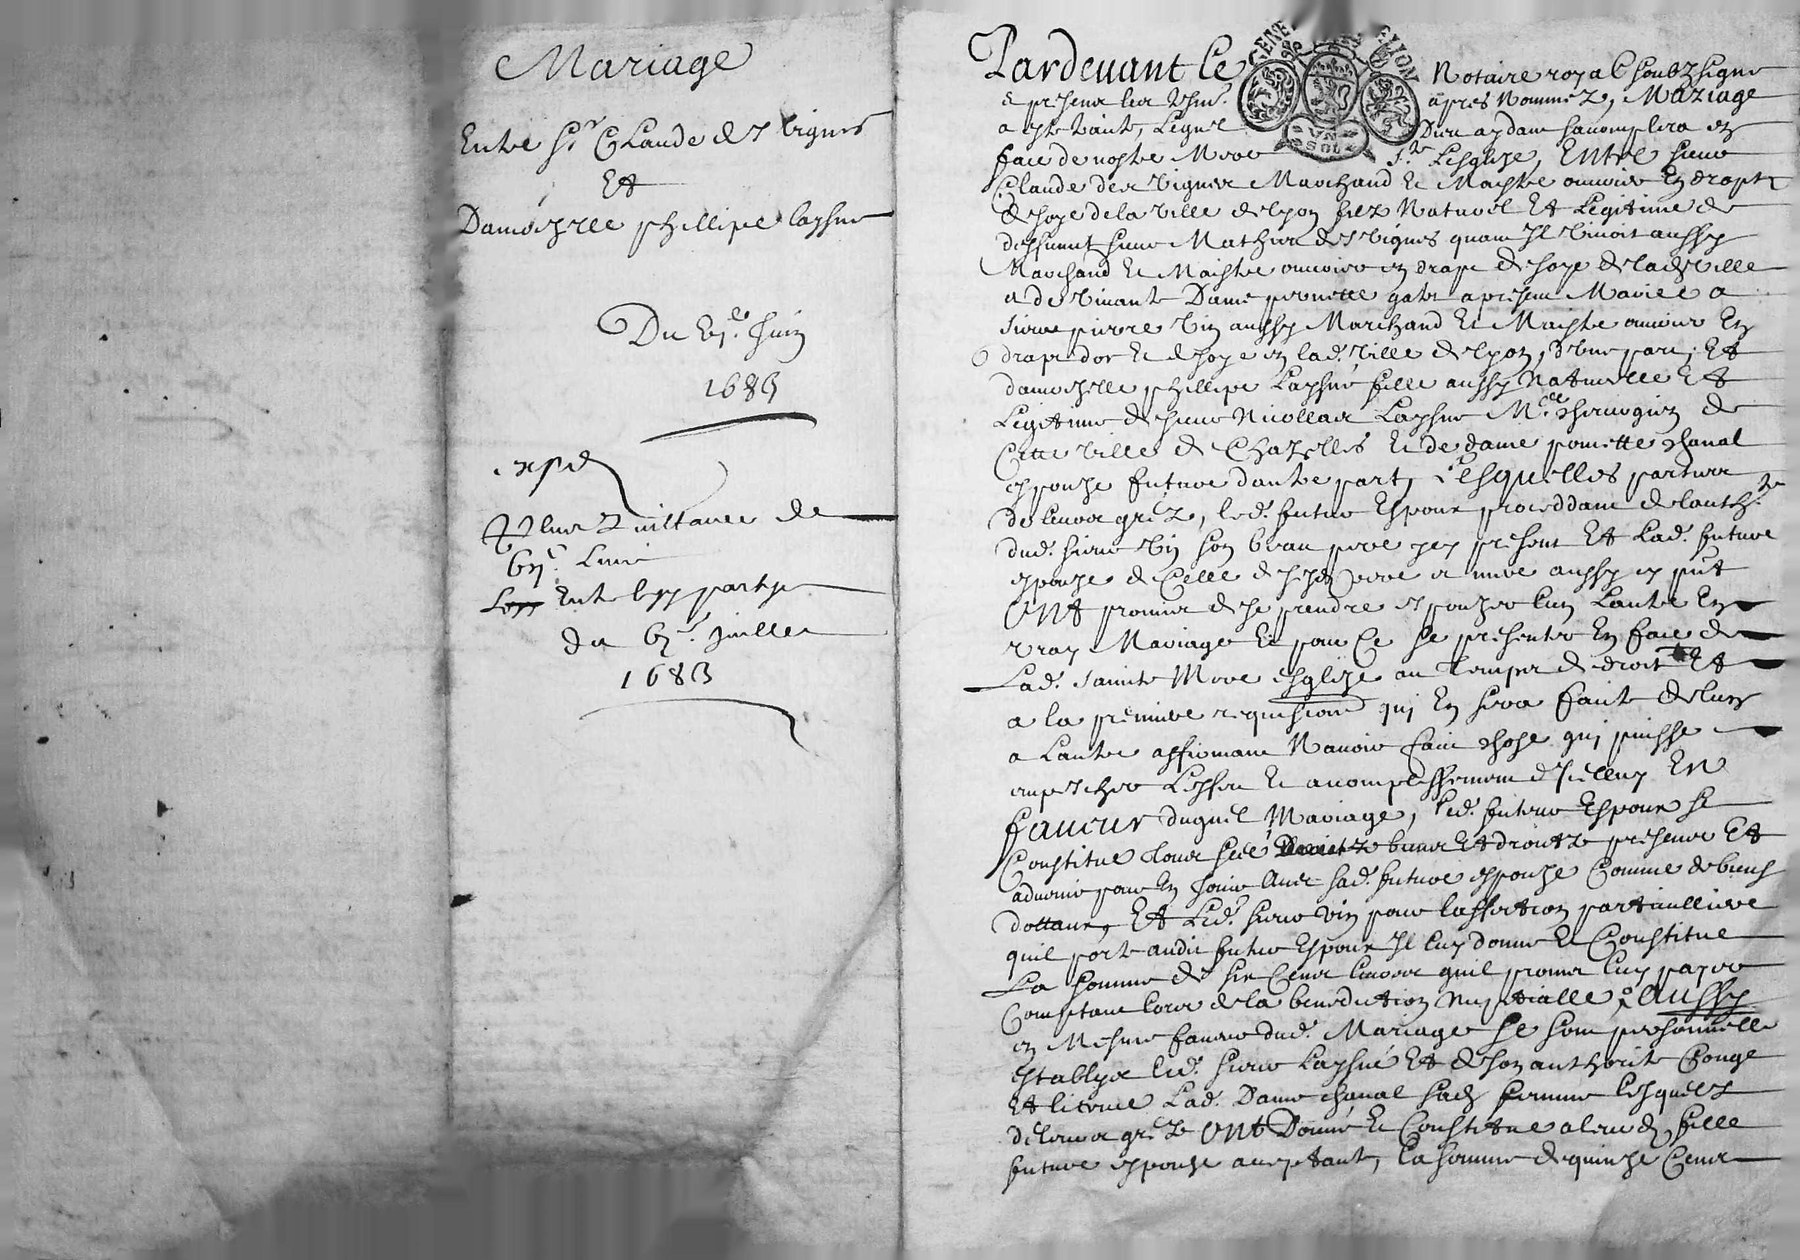 Mariage
Entre Sr Claude des Vignes
Et
Damoyzlle phillipe laysne
Du juin
1683
expd
Plus quittance de
Entre les parties
du juillet
1683
Pardevant le Notaire royal soubzsigne
apres Nommez, Mariage
a este traite, Lequel Dieu aydant saccomplira en
face de nostre Mere Ste Lesglize, Entre sieur
Claude des Vignes Marchand & Maistre ouvrier En draptz
de soye de la Ville de Lyon filz Naturel Et Legitime de
deffunct sieur Mathieu des Vignes quand Il Vivoit aussy
Marchand & Maistre ouvrier en drapt de soye de lad Ville
& de Vivante Dame pernette a present Mariee a
sieur pierre Vin aussy Marchand & Maistre ouvrier En
drapt dor & de soye en lad. Ville de Lyon, d'Une part, Et
damoyzelle phillipe Laysné fille aussy Naturelle Et
Legitime de sieur Nicollas Laysne Me chirurgien de
Cette Ville de Chazelles & de dame ponnette chanal
espouze future dautre part, Lesquelles parties
de leurs grez, led. futur Espoux proceddant de lauthte
dud. sieur Vin son beau pere icy present Et Lad. future
espouze de Celle de sesd pere & mere aussy icy pnt
Ont promis de se prendre espouzer lun Lautre En
vray Mariage & pour Ce se presenter En face de
Lad. sainte Mere esglize au temps de droit Et
a la premiere requisition quj En sera faite de lun
a Lautre affirmant Navoir faict chose quj puisse
empescher Leffect & accomplissement dicelluy En
faveur duquel Mariage, led. futur Espoux se
Constitue tous ses biens Et droitz presents Et
advenir pour En Jouir avec sad. future espouze Comme de biens
dottaux, Et Led. sieur Vin pour laffection particulliere
quil porte audit futur Espoux Il luy donne & Constitue
La somme de six Cents livres quil promet luy payer
Comptant lors de la benediction Nuptialle, Aussy
en Mesme faveur dud. Mariage se sont personnelle
establys led. sieur Laysné Et de son authorite Conge
Et licence Lad. Dame chanal sad femme lesquelz
de leurs grez Ont Donné & Constitue a leurd fille
future espouze acceptant, la somme de quinze Cents